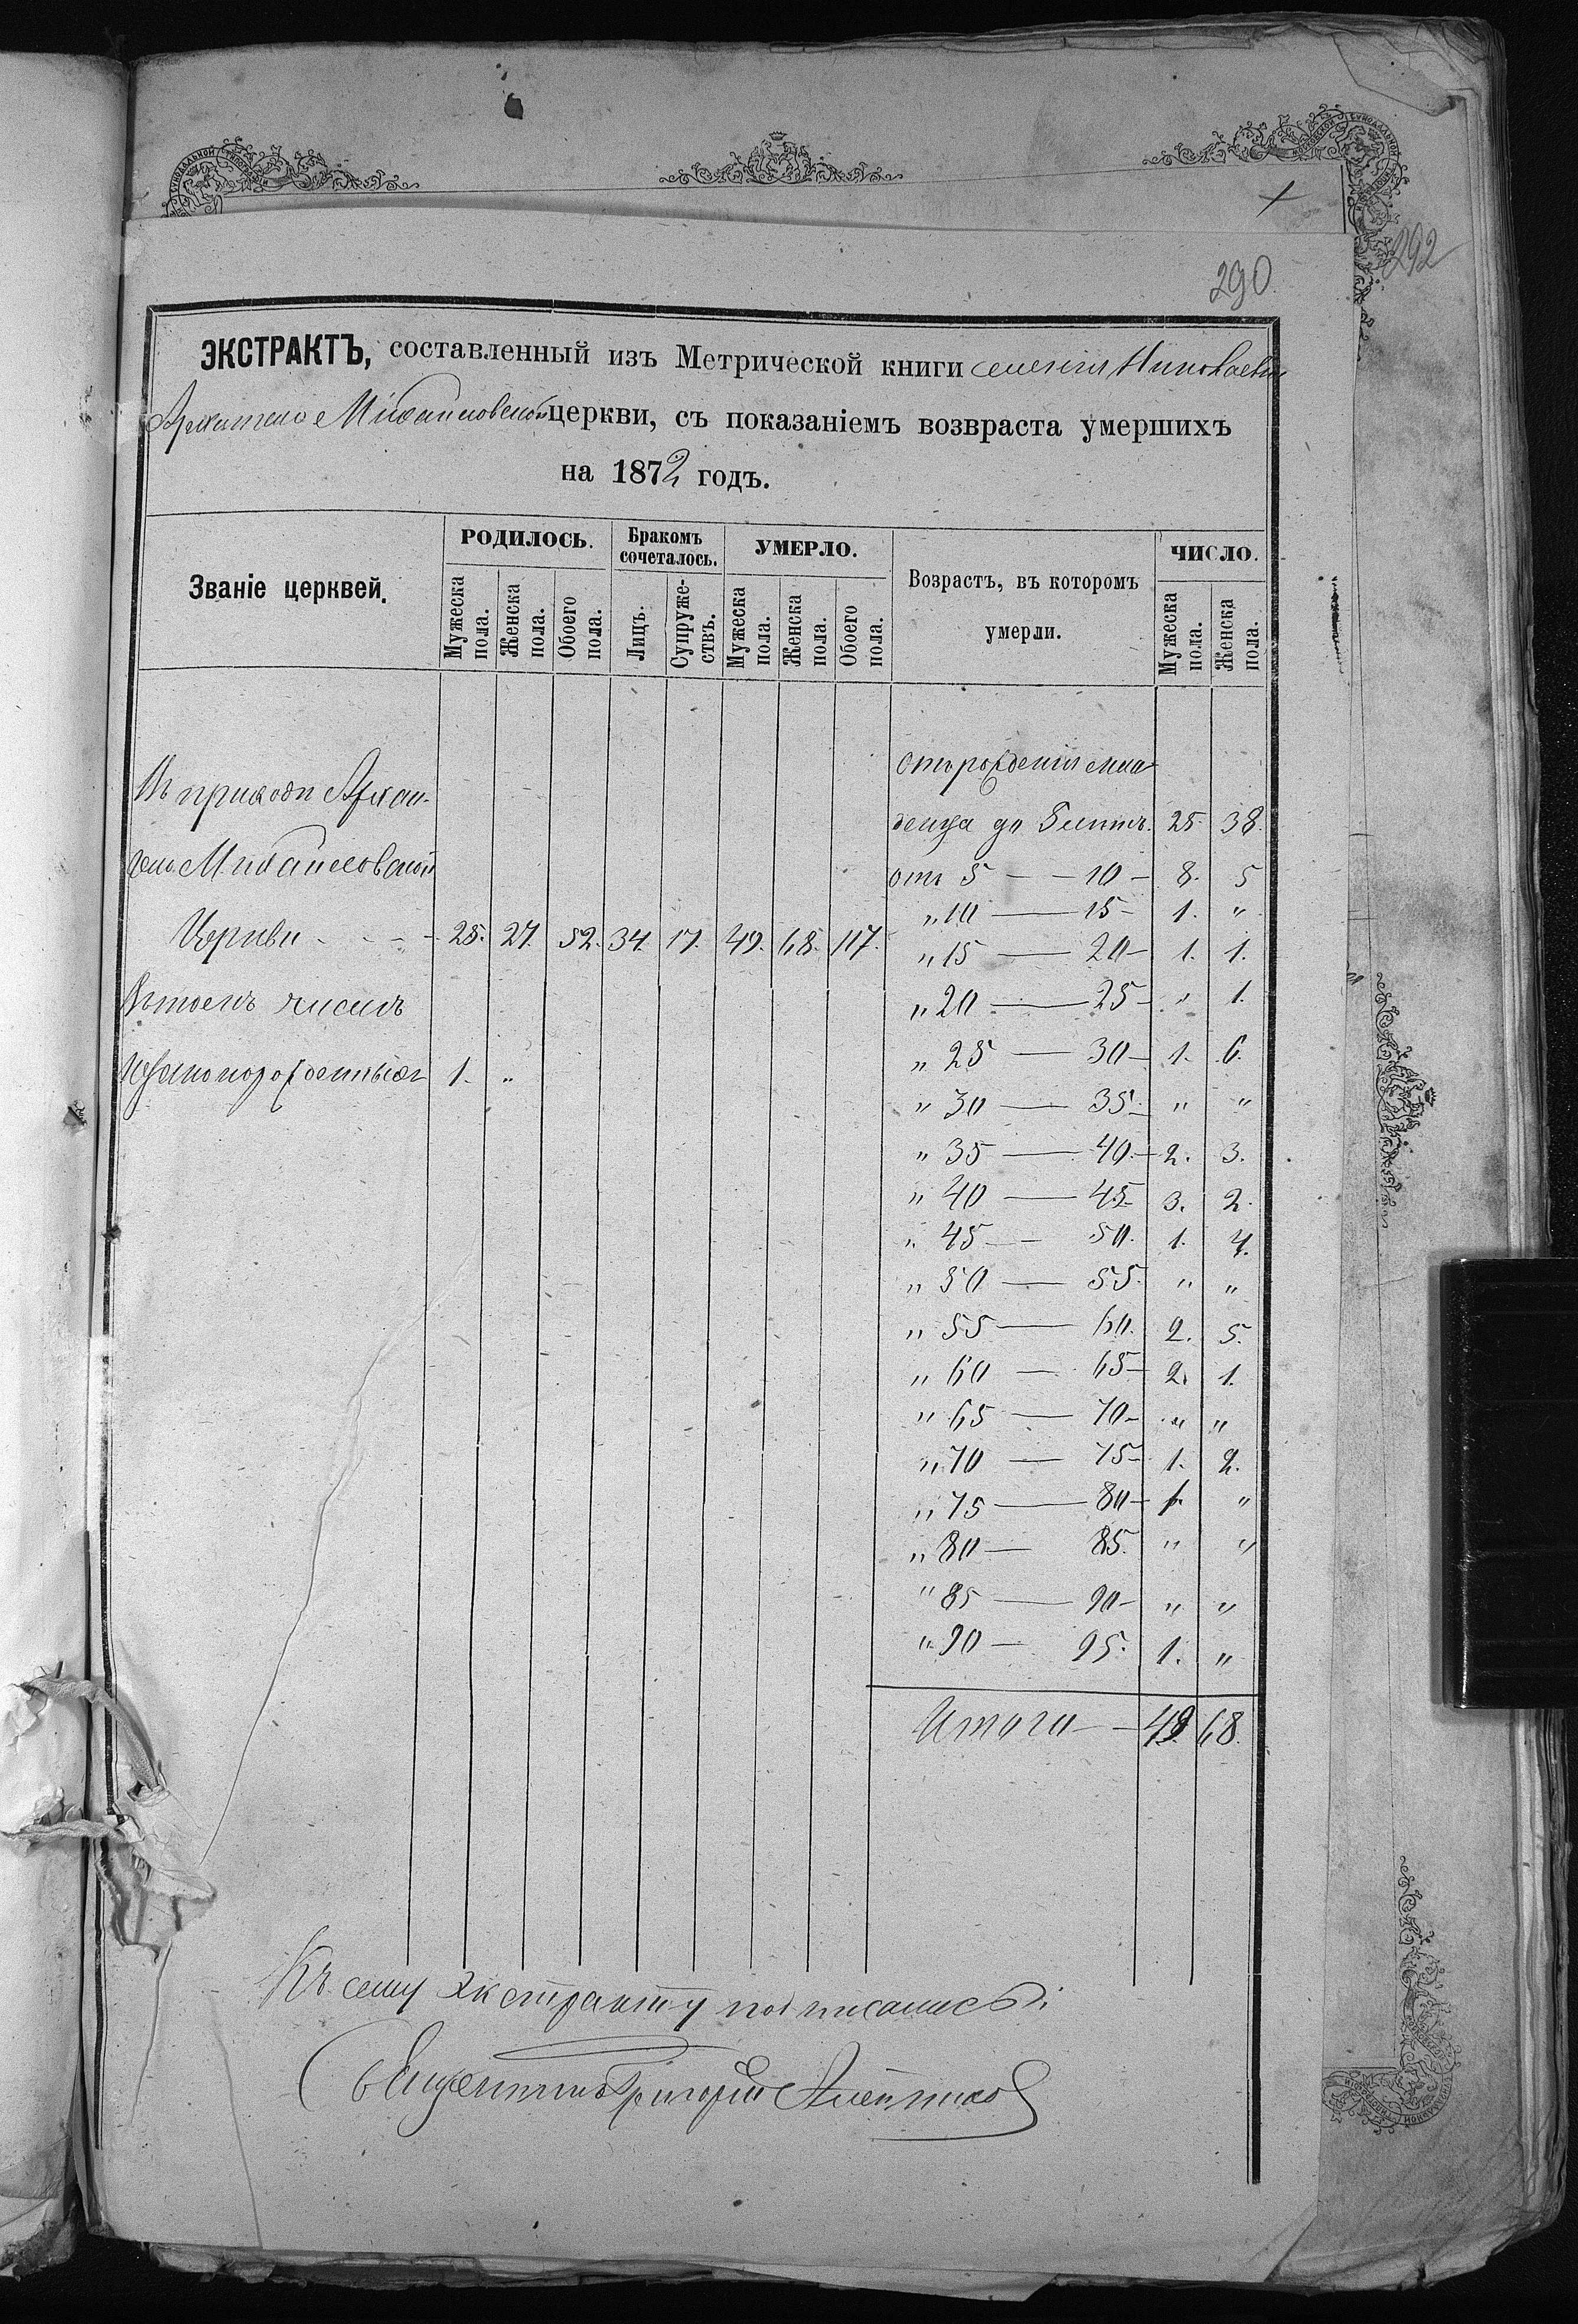 292
290
ЭКСТРАКТЪ, составленный изъ Метрической книги селенія Николаевки
Архангело Михайловской церкви, съ показаніемъ возвраста умершихъ
на 1872 годъ.
Званіе церквей. РОДИЛОСЬ. Бракомъ сочеталось. УМЕРЛО. Возрастъ, въ которомъ умерли. ЧИСЛО.
Мужеска пола. Женска пола. Обоего пола. Лицъ. Супружествъ. Мужеска пола. Женска пола. Обоего пола. Мужеска пола. Женска пола.
Отъ рожденія мла-
Въ приходѣ Архан-
денца до 5 лѣтъ. 25. 38.
гело Михайловской
отъ 5 — — 10 — 8. 5
„ 10 — 15 — 1. „
Церкви - - - - 25. 27. 52. 34. 17. 49. 68. 117.
„ 15 — 20 — 1. 1.
Въ томъ числѣ
„ 20 — 25 — „ 1.
„ 25 — 30 — 1. 6.
незаконорожденныхъ 1. „
„ 30 — 35 — „ „
„ 35 — 40. — 2. 3.
„ 40 — 45 3. 2.
„ 45 — 50. 1. 4.
„ 50 — 55. „ „
„ 55 — 60. 2. 5.
„ 60 — 65 — 2. 1.
„ 65 — 70 — „ „
„ 70 — 75 — 1. 2.
„ 75 — 80 — 1. „
„ 80 — 85. „ „
„ 85 — 90 — „ „
„ 90 — 95. 1. „
Итого — — 49. 68.
Къ сему экстракту подписались:
Священникъ Григорій